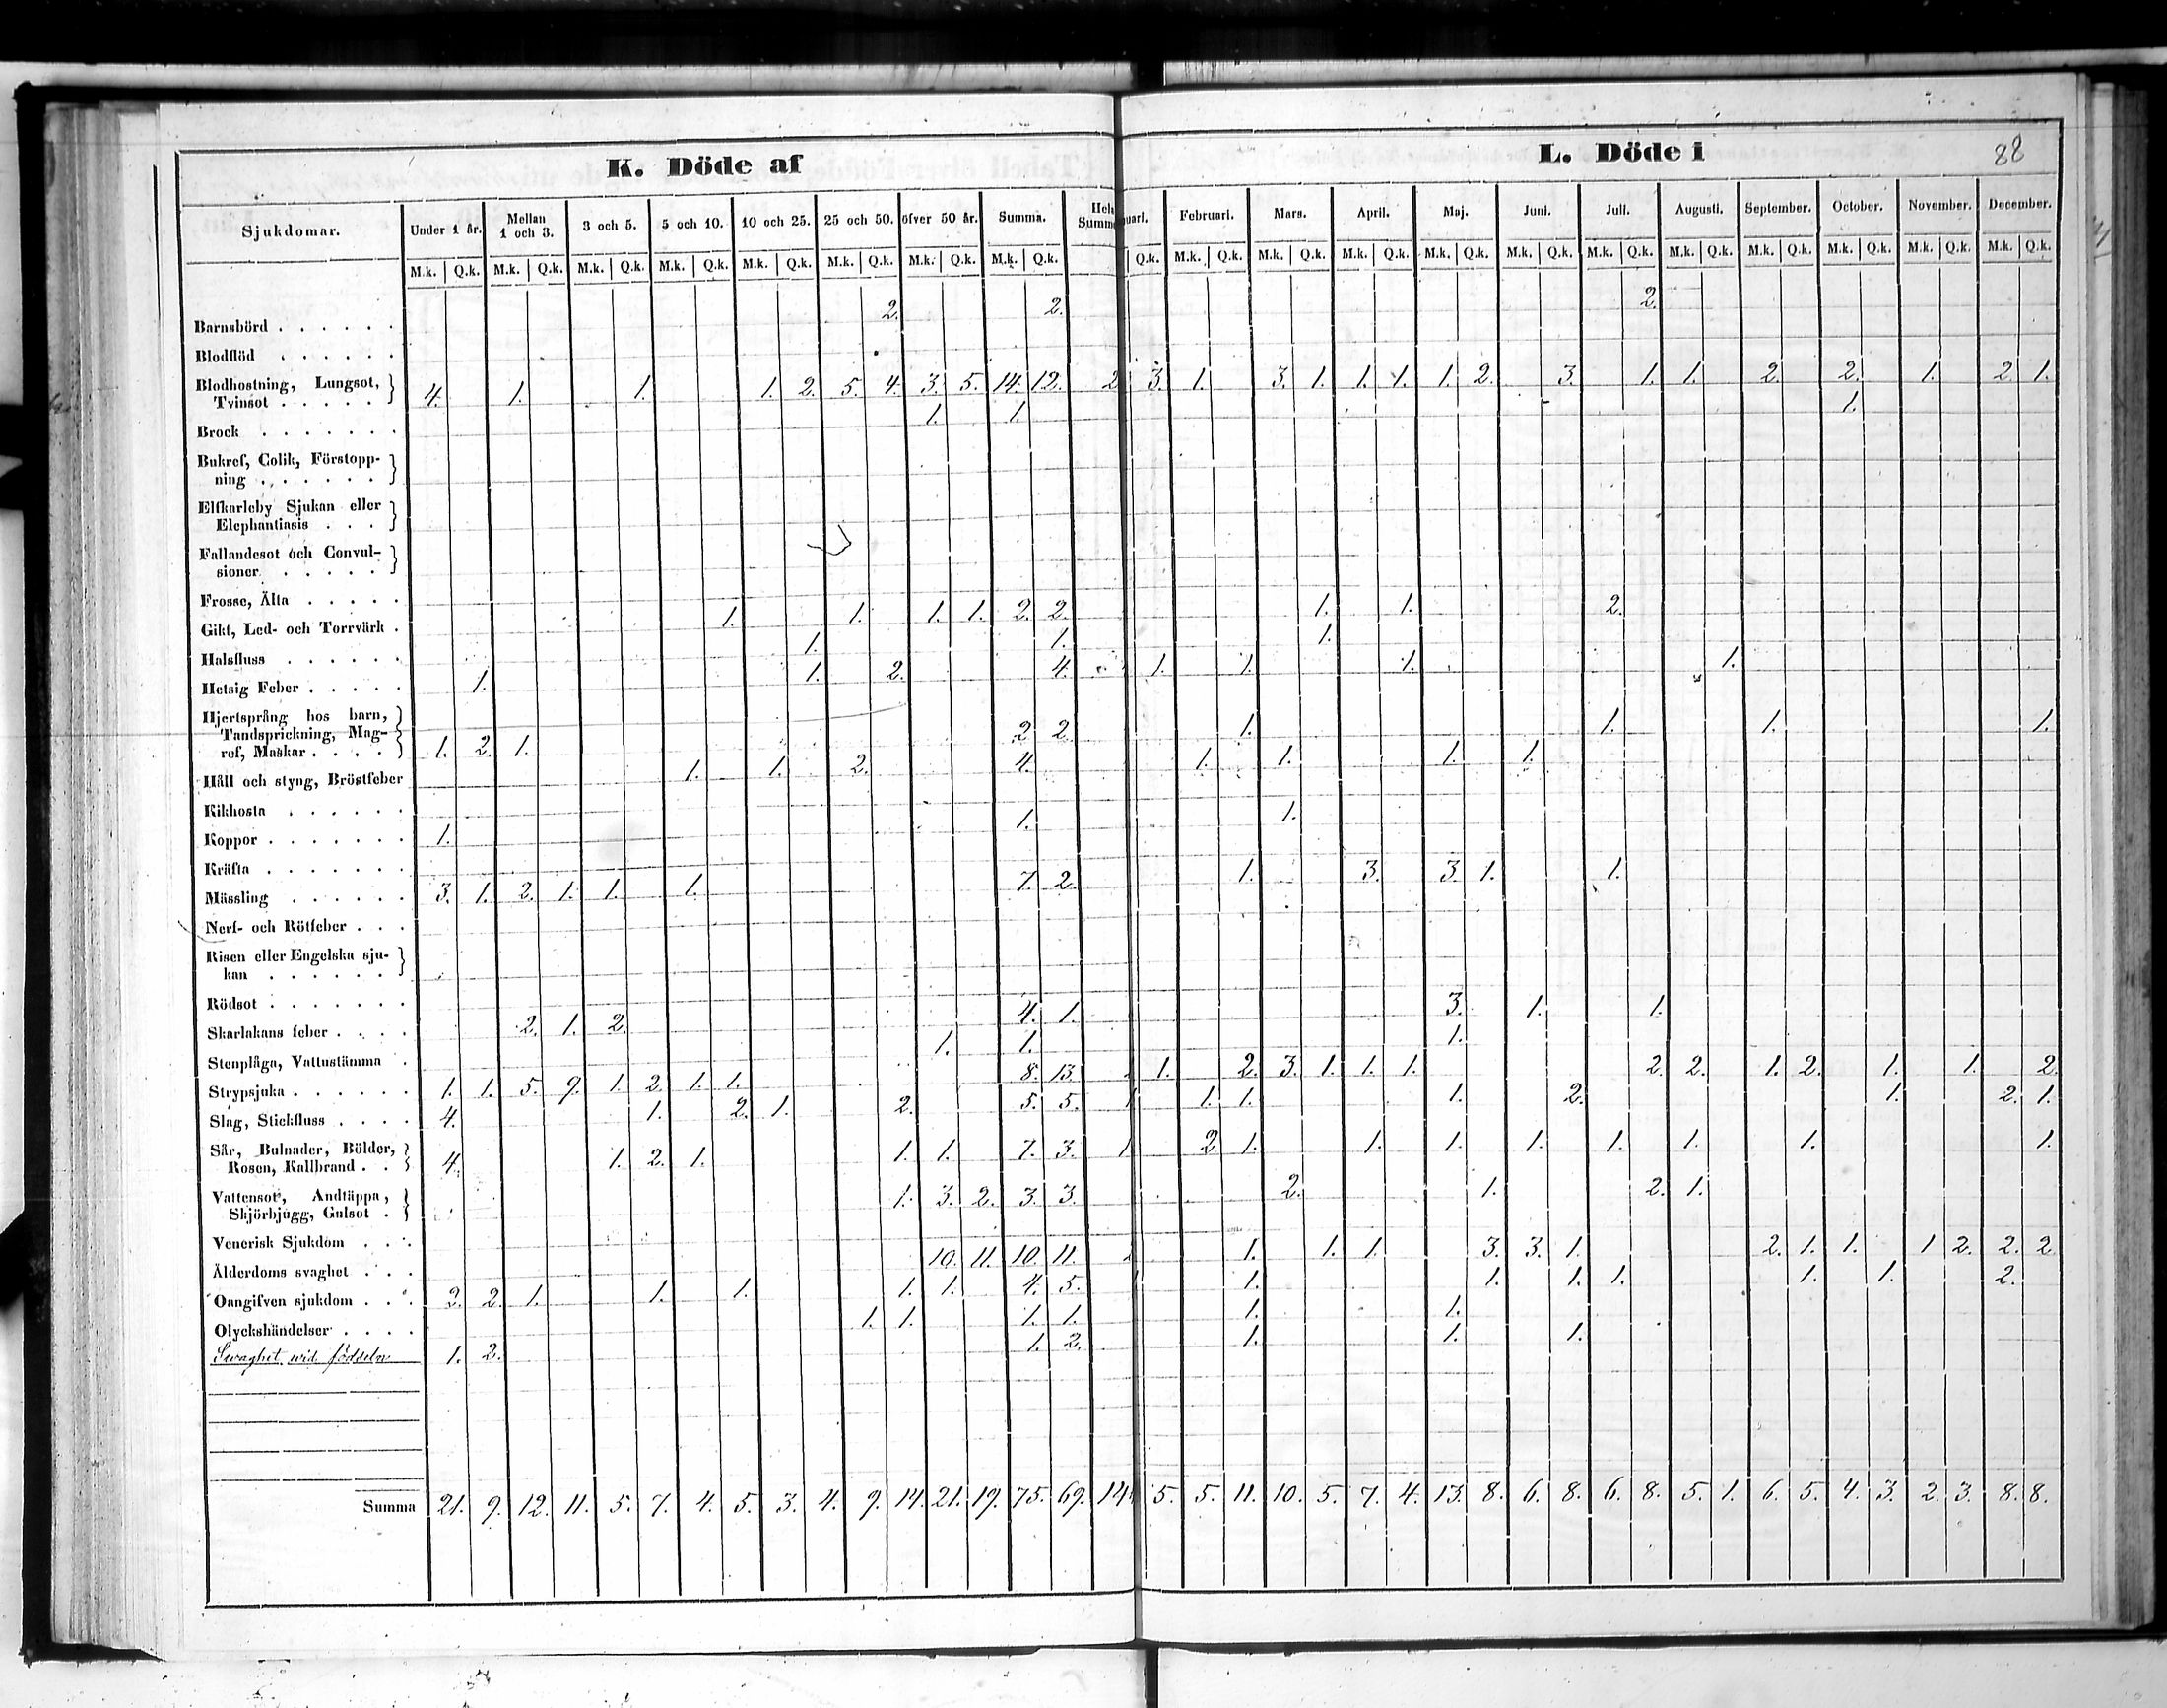 K. Döde af L. Döde i 88
Sjukdomar. Under 1 år. Mellan 1 och 3. 3 och 5. 5 och 10. 10 och 25. 25 och 50. öfver 50 år. Summa. Februari. Mars. April. Maj. Juni. Juli. Augusti. September. October. November. December.
M.k. Q.k. M.k. Q.k. M.k. Q.k. M.k. Q.k. M.k. Q.k. M.k. Q.k. M.k. Q.k. M.k. Q.k. Q.k. M.k. Q.k. M.k. Q.k. M.k. Q.k. M.k. Q.k. M.k. Q.k. M.k. Q.k. M.k. Q.k. M.k. Q.k. M.k. Q.k. M.k. Q.k. M.k. Q.k.
Barnsbörd . . . . . . 2. 2. 2.
Blodflöd . . . . . .
Blodhostning, Lungsot,
Tvinsot . . . . . 4. 1. 1. 1. 2. 5. 4. 3. 5. 14. 12. 2 3. 1. 3. 1. 1. 1. 1. 2. 3. 1. 1. 2. 2. 1. 2. 1.
Brock . . . . . . . 1. 1. 1.
Bukref, Colik, Förstopp-
ning . . . . . .
Elfkarleby Sjukan eller
Elephantiasis . . .
Fallandesot och Convul-
sioner . . . . .
Frosse, Älta . . . . .
Gikt, Led- och Torrvärk . 1. 1. 1. 1. 2. 2. 1. 1. 2.
Halsfluss . . . . . . 1. 1. 1.
Hetsig Feber . . . . . 1. 1. 2. 4. 1. 1. 1. 1.
Hjertsprång hos barn,
Tandsprickning, Mag-
ref, Maskar . . . . 1. 2. 1. 2 2. 1. 1. 1. 1.
Håll och styng, Bröstfeber 1. 1. 2. 4. 1. 1. 1. 1.
Kikhosta . . . . . .
Koppor . . . . . . . 1. 1. 1.
Kräfta . . . . . . .
Mässling . . . . . . 3. 1. 2. 1. 1. 1. 7. 2. 1. 3. 3. 1. 1.
Nerf- och Rötfeber . . .
Risen eller Engelska sju-
kan . . . . . .
Rödsot . . . . . . .
Skarlakans feber . . . . 2. 1. 2. 4. 1. 3. 1. 1.
Stenplåga, Vattustämma . 1. 1. 1.
Strypsjuka . . . . . . 1. 1. 5. 9. 1. 2. 1. 1. 8. 13. 1. 2. 3. 1. 1. 1. 2. 2. 1. 2. 1. 1. 2.
Slag, Stickfluss . . . . 4. 1. 2. 1. 2. 5. 5. 1 1. 1. 1. 2. 1. 2. 1.
Sår, Bulnader, Bölder,
Rosen, Kallbrand . . 4. 1. 2. 1. 1. 1. 7. 3. 1 2 1. 1. 1. 1. 1. 1. 1. 1.
Vattensot, Andtäppa,
Skjörbjugg, Gulsot . 1. 3. 2. 3. 3. 2. 1. 2. 1.
Venerisk Sjukdom . . .
Ålderdoms svaghet . . . 10. 11. 10. 11. 1. 1. 1. 3. 3. 1. 2. 1. 1. 1 2. 2. 2.
Oangifven sjukdom . . . 2. 2. 1. 1. 1. 1. 1. 4. 5. 1. 1. 1. 1. 1. 1. 2.
Olyckshändelser . . . . 1. 1. 1. 1. 1. 1.
Swaghet wid födseln 1. 2. 1. 2. 1. 1. 1.
Summa 21. 9. 12. 11. 5. 7. 4. 5. 3. 4. 9. 14. 21. 19. 75. 69. 5. 5. 11. 10. 5. 7. 4. 13. 8. 6. 8. 6. 8. 5. 1. 6. 5. 4. 3. 2. 3. 8. 8.